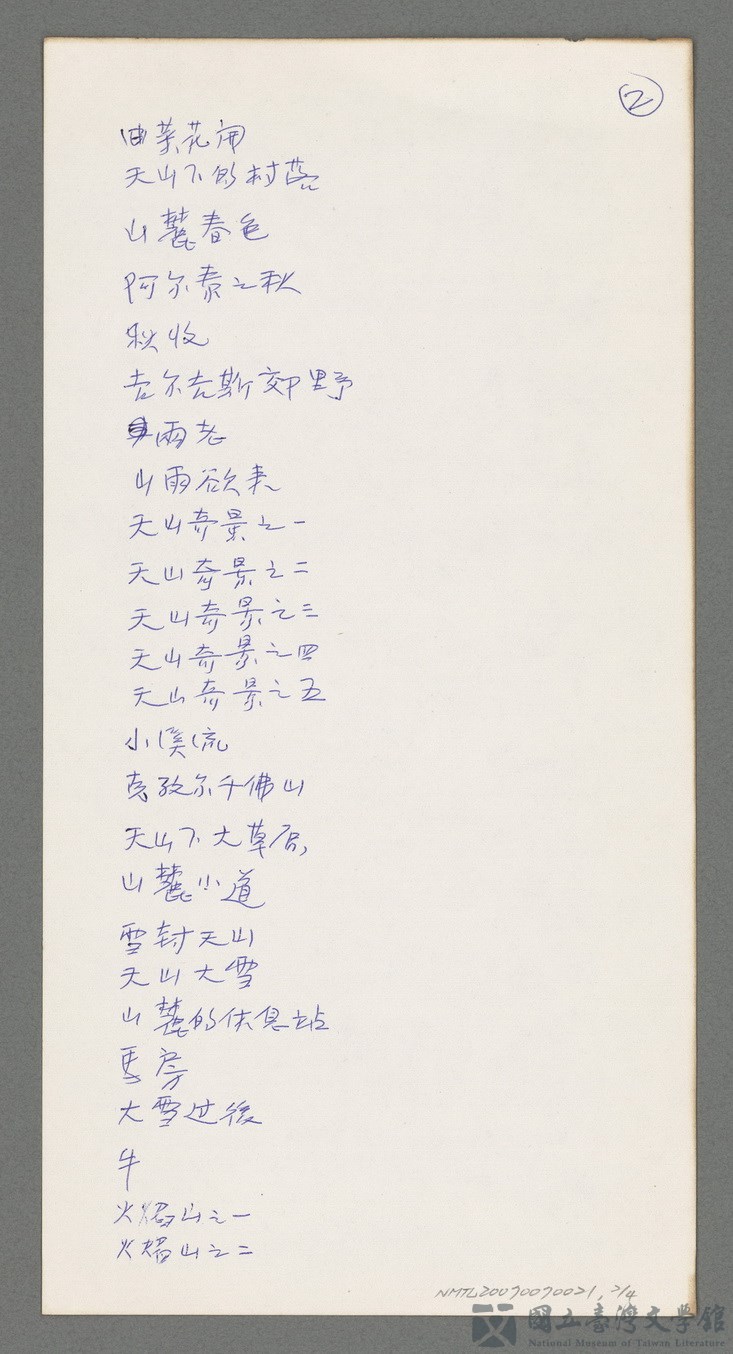 ②
油菜花開
天山下的村落
山麓春色
阿尔泰之秋
秋收
吉尔吉斯郊野
雨老
山雨欲来
天山奇景之一
天山奇景之二
天山奇景之三
天山奇景之四
天山奇景之五
小溪流
克孜尔千佛山
天山下大草原
山麓小道
雪封天山
天山大雪
山麓的休息站
馬房
大雪过後
牛
火焰山之一
火焰山之二
NMTL20070070021, 2/4
國立臺灣文學館
National Museum of Taiwan Literature